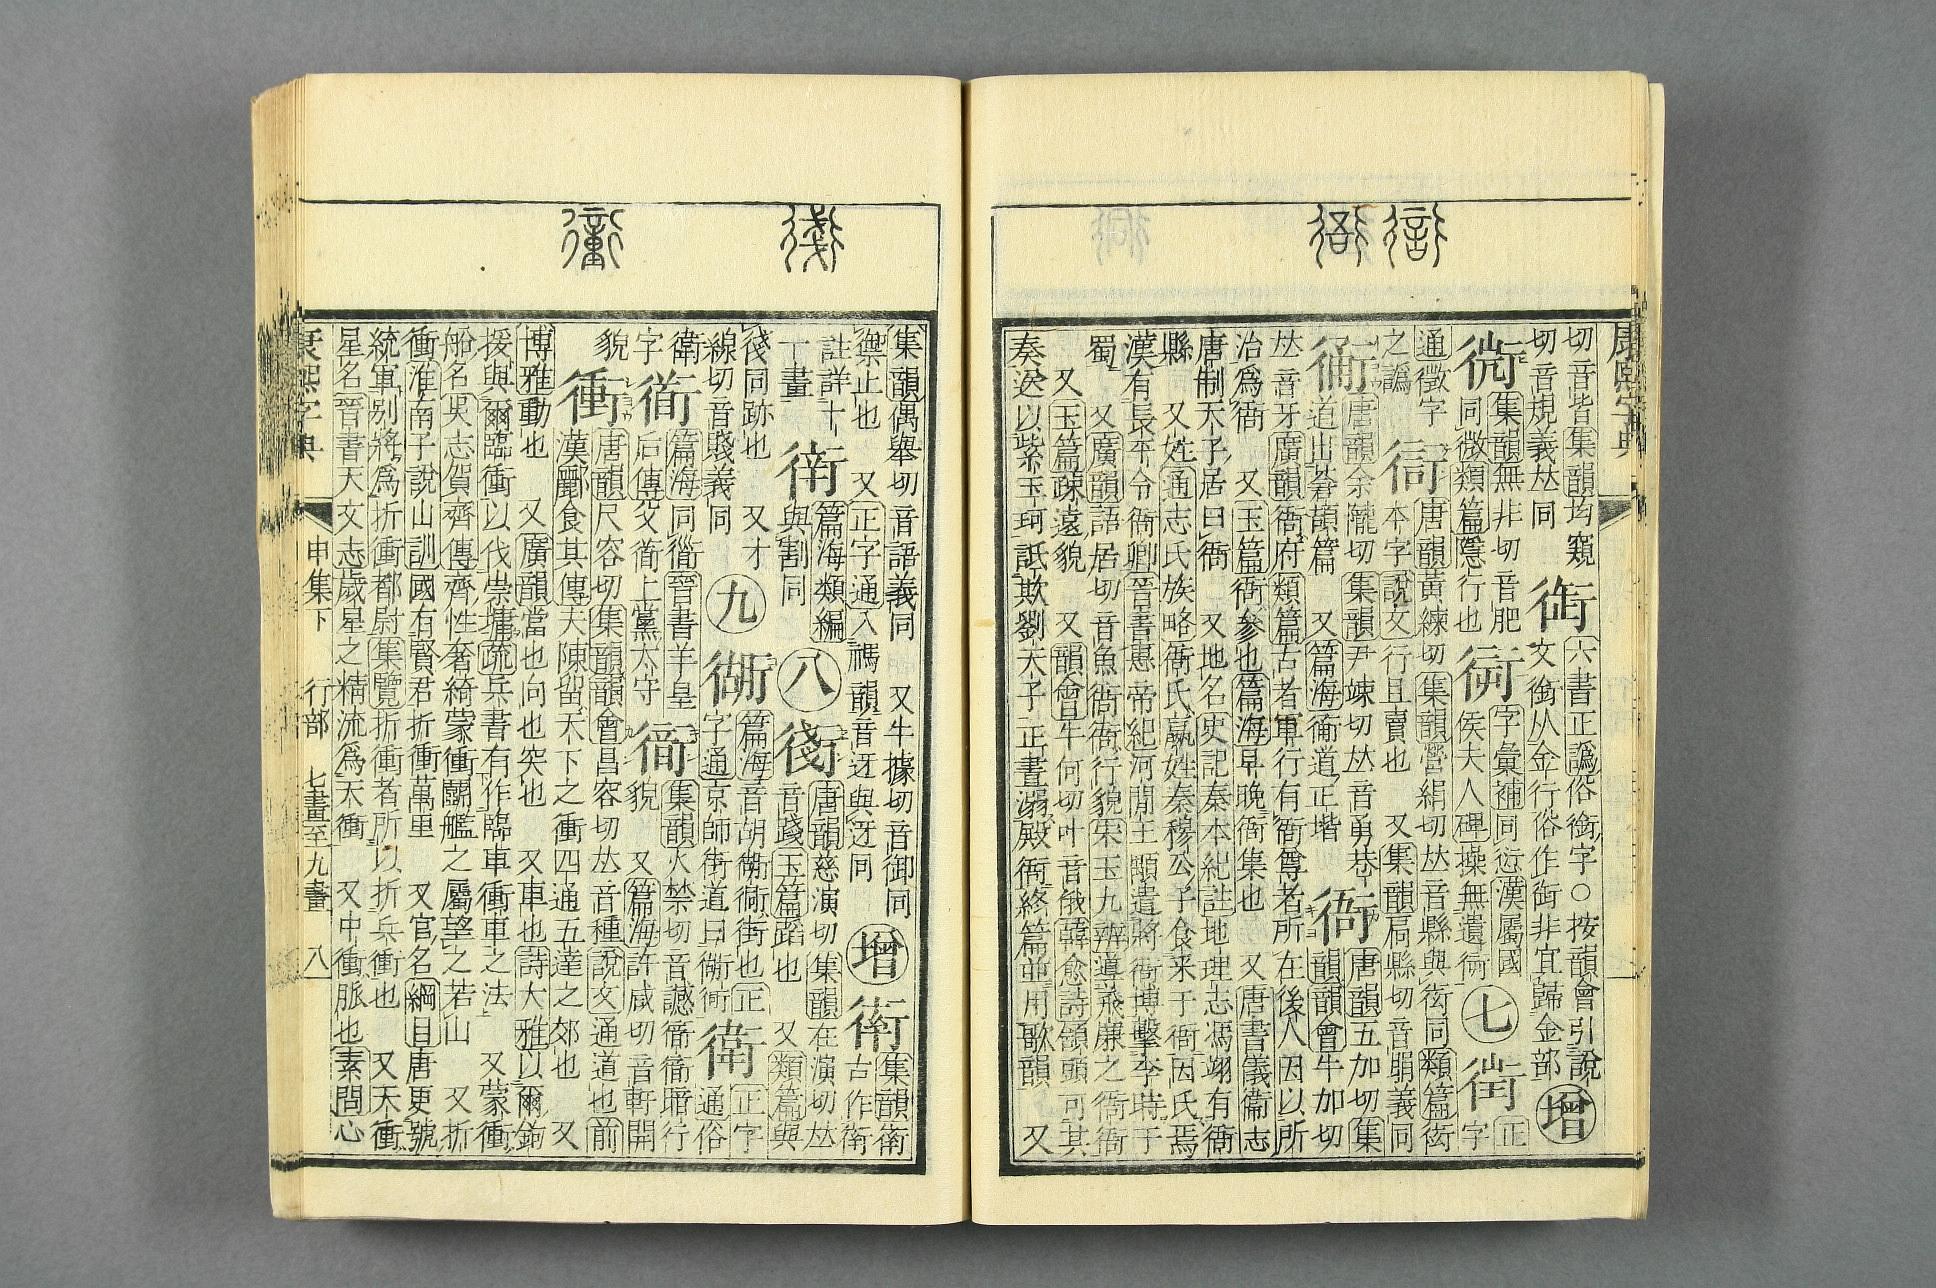 康熙字典
切音皆集韻均窺
切音規義𠀤同
衘
六書正譌俗銜字○按韻會引說
文銜从金行俗作衘非宜歸金部
增
集韻無非切音肥
同微類篇隱行也
字彙補同衍漢屬國
侯夫人碑操無遺
七
正
字
通徵字
之譌
衒
唐韻黃練切集韻營絹切𠀤音縣與衒同類篇衒
本字說文行且賣也 又集韻扃縣切音睊義同
衕
唐韻余隴切集韻尹竦切𠀤音勇巷
道出蒼頡篇 又篇海衕道正堦
衙
唐韻五加切集
韻韻會牛加切
𠀤音牙廣韻衙府類篇古者軍行有衙尊者所在後人因以所
治爲衙 又玉篇衙參也篇海早晚衙集也 又唐書儀衞志
唐制天子居曰衙 又地名史記秦本紀註地理志馮翊有衙
縣 又姓通志氏族略衙氏嬴姓秦穆公子食采于衙因氏焉
漢有長平令衙卿晉書惠帝紀河閒王顒遣將衙博擊李特于
蜀 又廣韻語居切音魚衙衙行貌宋玉九辨導飛廉之衙衙
又玉篇疎遠貌 又韻會牛何切叶音俄韓愈詩頷頭可其
奏送以紫玉珂詆欺劉天子正晝溺殿衙終篇並用歌韻 又
集韻偶舉切音語義同 又牛據切音御同
禦止也 又正字通入禡韻音迓與迓同
增
衛
集韻衛
古作衛
註詳十
一畫
篇海類編
與割同
八
衟
唐韻慈演切集韻在演切𠀤
音踐玉篇蹈也 又類篇與
後同跡也 又才
線切音賤義同
九
衚
篇海音胡衚衕街也正
字通京師街道曰衚衕
衞
正字
通俗
衛
字
篇海同衟晉書羊皇
后傳父衟上黨太守
集韻火禁切音䜗
貌 又篇海許咸切音軒開
貌
衝
唐韻尺容切集韻韻會昌容切𠀤音種說文通道也前
漢酈食其傳天下陳留天下之衝四通五達之郊也 又
博雅動也 又廣韻當也向也突也 又車也詩大雅以爾鉤
援與爾臨衝以伐崇墉疏兵書有作臨車衝車之法 又蒙衝
船名吳志賀齊傳齊性奢綺蒙衝鬭艦之屬望之若山 又折
衝淮南子說山訓國有賢君折衝萬里 又官名綱目唐更號
統軍别將爲折衝都尉集覽折衝者所以折兵衝也 又天衝
星名晉書天文志歲星之精流爲天衝 又中衝脈也素問心
康熙字典
申集下
行部
七畫至九畫
八